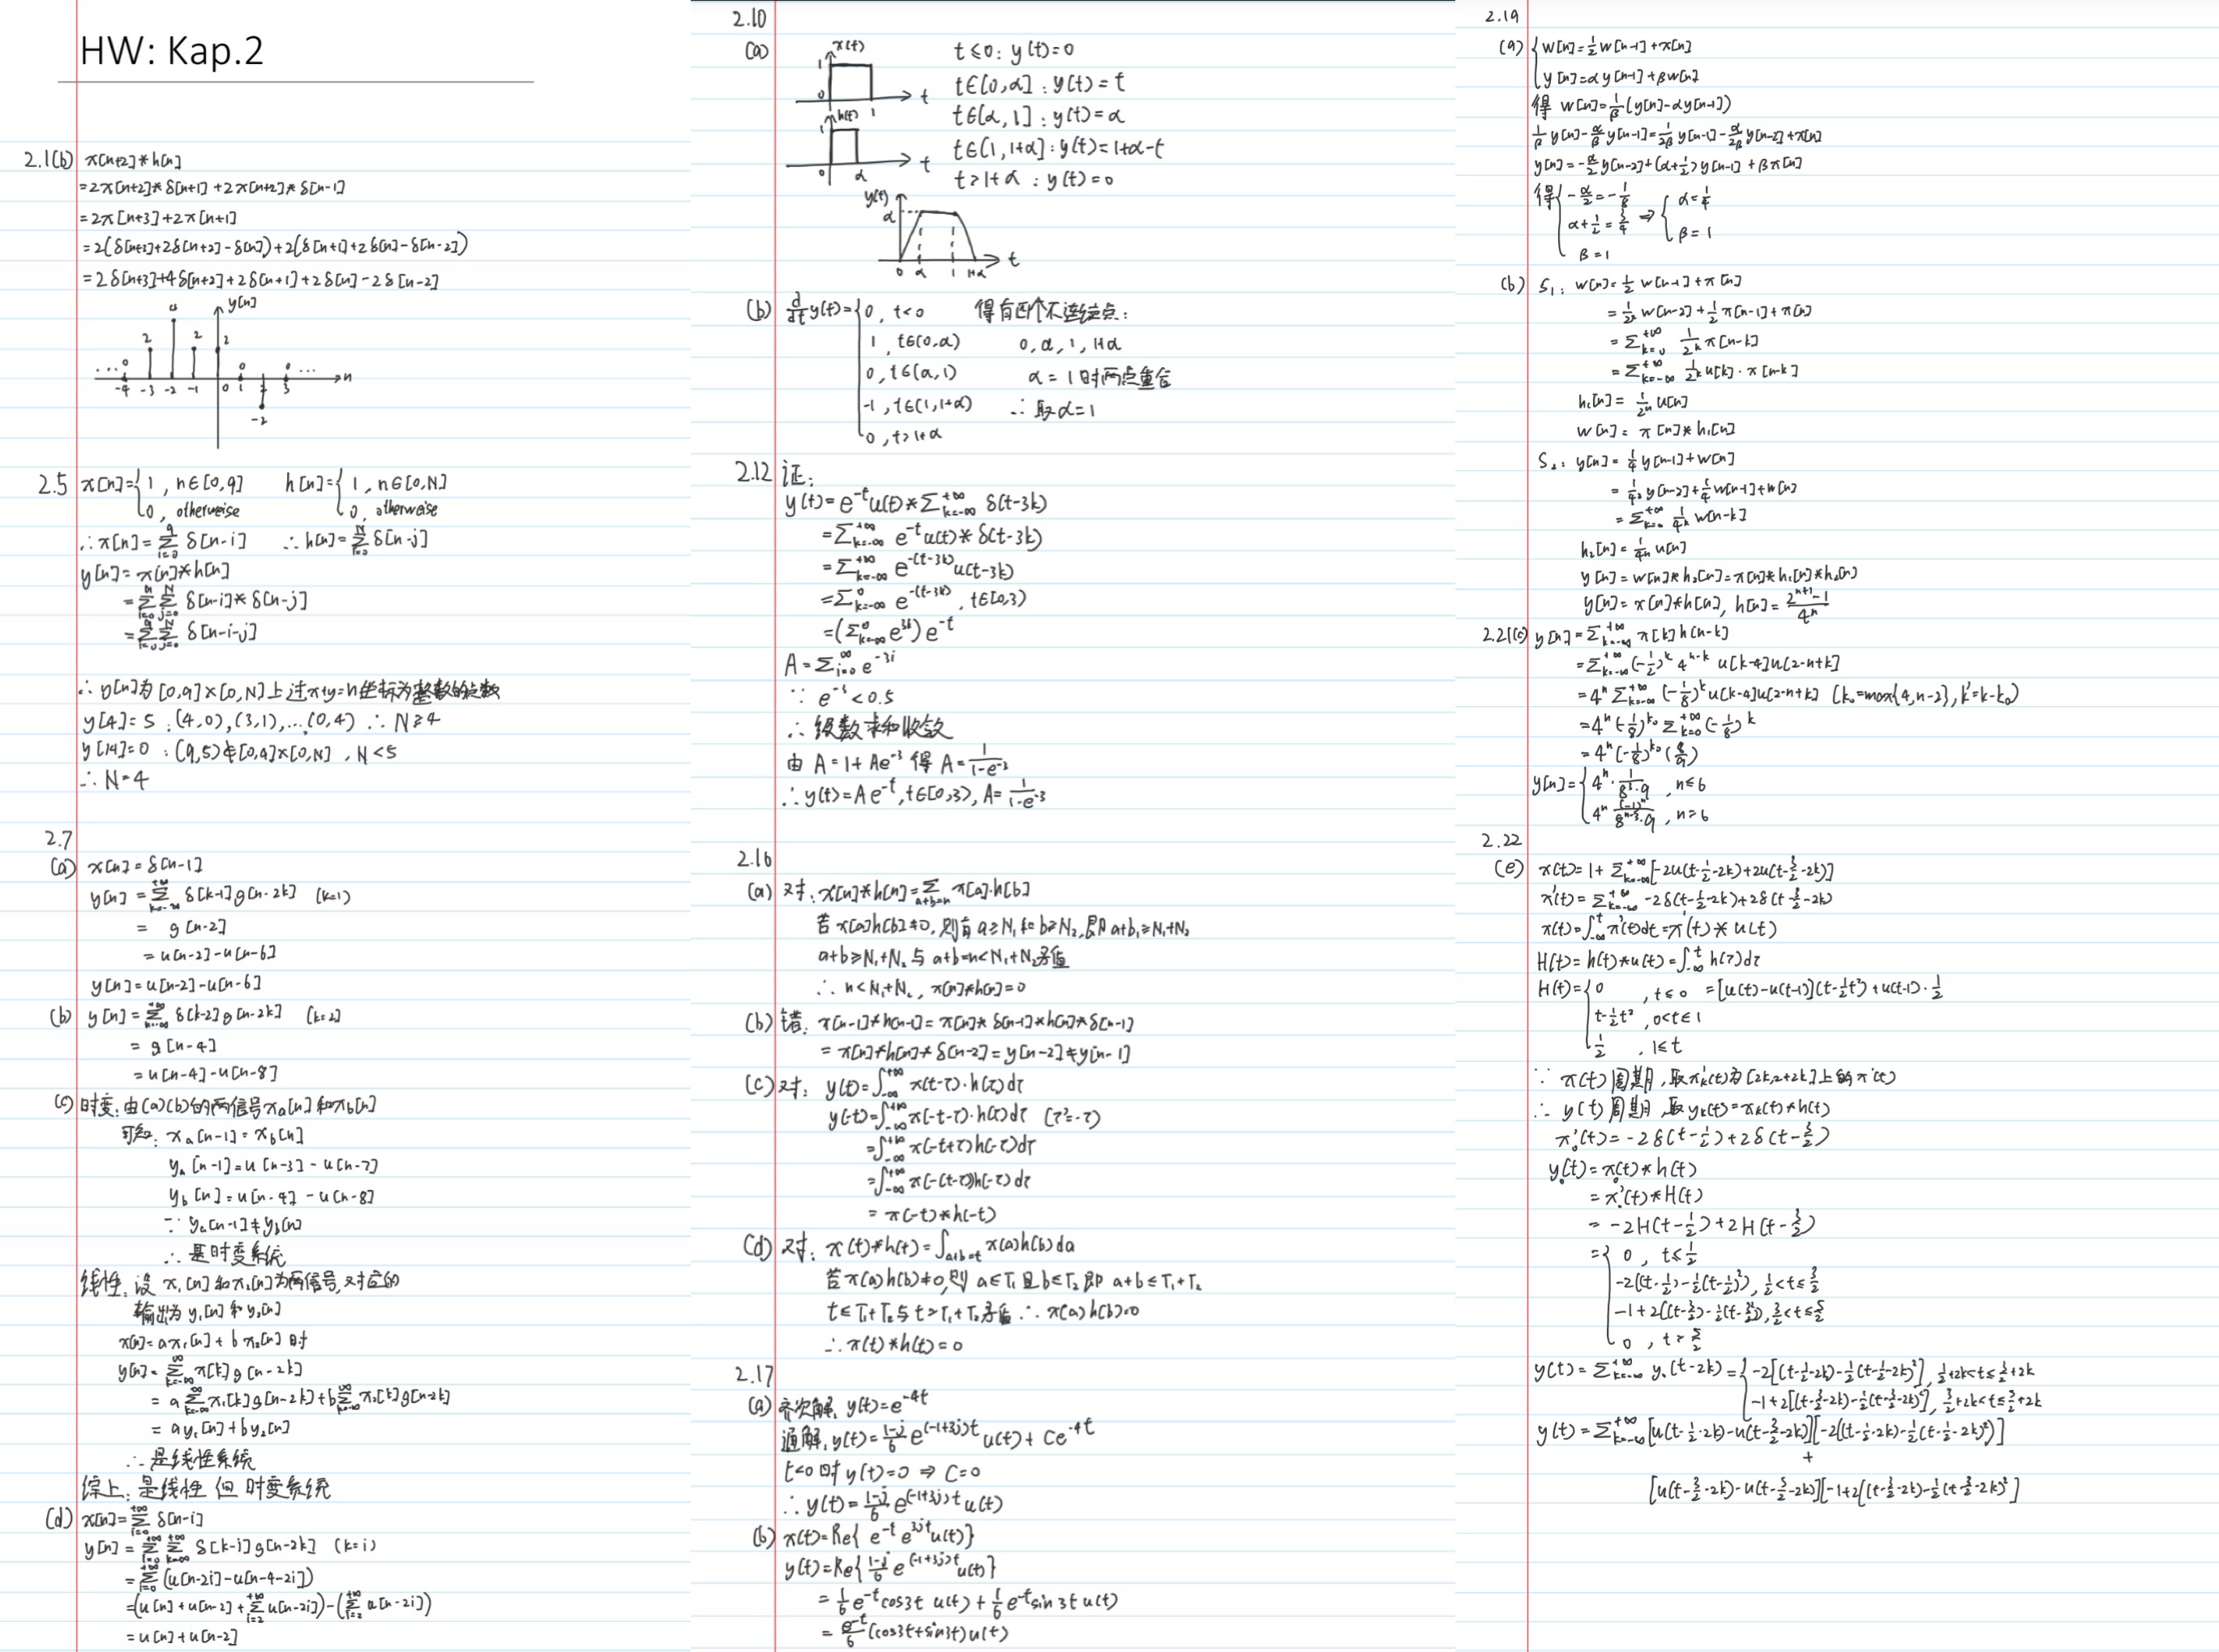 HW: Kap.2
2.1(b) x[n+2]*h[n]
=2x[n+2]*δ[n+1]+2x[n+2]*δ[n-1]
=2x[n+3]+2x[n+1]
=2(δ[n+3]+2δ[n+2]-δ[n])+2(δ[n+1]+2δ[n]-δ[n-2])
=2δ[n+3]+4δ[n+2]+2δ[n+1]+2δ[n]-2δ[n-2]
y[n]
2 2 2
... 0 0 0 ...
-4 -3 -2 -1 0 1 2 3 n
-2
2.5 x[n]={1, n∈[0,9] h[n]={1, n∈[0,N]
0, otherwise 0, otherwise
∴x[n]=∑_{i=0}^{9} δ[n-i] ∴h[n]=∑_{j=0}^{N} δ[n-j]
y[n]=x[n]*h[n]
=∑_{i=0}^{9}∑_{j=0}^{N} δ[n-i]*δ[n-j]
=∑_{i=0}^{9}∑_{j=0}^{N} δ[n-i-j]
∴y[n]为[0,9]×[0,N]上过x+y=n坐标为整数的点数
y[4]=5:(4,0),(3,1),...(0,4) ∴N≥4
y[14]=0:(9,5)∉[0,9]×[0,N], N<5
∴N=4
2.7
(a) x[n]=δ[n-1]
y[n]=∑_{k=-∞}^{+∞} δ[k-1]g[n-2k] (k=1)
= g[n-2]
=u[n-2]-u[n-6]
y[n]=u[n-2]-u[n-6]
(b) y[n]=∑_{k=-∞}^{+∞} δ[k-2]g[n-2k] (k=2)
= g[n-4]
=u[n-4]-u[n-8]
(c) 时变:由(a)(b)的两信号x_a[n]和x_b[n]
可知: x_a[n-1]=x_b[n]
y_a[n-1]=u[n-3]-u[n-7]
y_b[n]=u[n-4]-u[n-8]
∵y_a[n-1]≠y_b[n]
∴是时变系统
线性:设x₁[n]和x₂[n]为两信号,对应的
输出为y₁[n]和y₂[n]
x[n]=ax₁[n]+bx₂[n]时
y[n]=∑_{k=-∞}^{∞} x[k]g[n-2k]
=a∑_{k=-∞}^{∞} x₁[k]g[n-2k]+b∑_{k=-∞}^{∞} x₂[k]g[n-2k]
=ay₁[n]+by₂[n]
∴是线性系统
综上:是线性但时变系统
(d) x[n]=∑_{i=0}^{+∞} δ[n-i]
y[n]=∑_{i=0}^{+∞}∑_{k=-∞}^{+∞} δ[k-i]g[n-2k] (k=i)
=∑_{i=0}^{+∞}(u[n-2i]-u[n-4-2i])
=(u[n]+u[n-2]+∑_{i=2}^{+∞}u[n-2i])-(∑_{i=2}^{+∞}u[n-2i])
=u[n]+u[n-2]
2.10
(a) x(t) t≤0: y(t)=0
1 t∈(0,α]: y(t)=t
0 1 t
h(t) t∈(α,1]: y(t)=α
1 t∈(1,1+α]: y(t)=1+α-t
0 α t
t>1+α: y(t)=0
y(t)
α
0 α 1 1+α t
(b) d/dt y(t)={0, t<0 得有四个不连续点:
1, t∈(0,α) 0,α,1,1+α
0, t∈(α,1) α=1时两点重合
-1, t∈(1,1+α) ∴取α=1
0, t>1+α
2.12 证:
y(t)=e^{-t}u(t)*∑_{k=-∞}^{+∞} δ(t-3k)
=∑_{k=-∞}^{+∞} e^{-t}u(t)*δ(t-3k)
=∑_{k=-∞}^{+∞} e^{-(t-3k)}u(t-3k)
=∑_{k=-∞}^{0} e^{-(t-3k)}, t∈[0,3)
=(∑_{k=-∞}^{0} e^{3k})e^{-t}
A=∑_{i=0}^{∞} e^{-3i}
∵e^{-3}<0.5
∴级数求和收敛
由A=1+Ae^{-3}得A=1/(1-e^{-3})
∴y(t)=Ae^{-t}, t∈[0,3), A=1/(1-e^{-3})
2.16
(a) 对: x[n]*h[n]=∑_{a+b=n} x[a]·h[b]
若x[a]h[b]≠0,则有a≥N₁和b≥N₂,即a+b≥N₁+N₂
a+b≥N₁+N₂与a+b=n<N₁+N₂矛盾
∴n<N₁+N₂, x[n]*h[n]=0
(b) 错: x[n-1]*h[n-1]=x[n]*δ[n-1]*h[n]*δ[n-1]
=x[n]*h[n]*δ[n-2]=y[n-2]≠y[n-1]
(c) 对: y(t)=∫_{-∞}^{+∞} x(t-τ)·h(τ)dτ
y(-t)=∫_{-∞}^{+∞} x(-t-τ)·h(τ)dτ (τ'=-τ)
=∫_{-∞}^{+∞} x(-t+τ)h(-τ)dτ
=∫_{-∞}^{+∞} x(-(t-τ))h(-τ)dτ
=x(-t)*h(-t)
(d) 对: x(t)*h(t)=∫_{a+b=t} x(a)h(b)da
若x(a)h(b)≠0,则a≤T₁且b≤T₂即a+b≤T₁+T₂
t≤T₁+T₂与t>T₁+T₂矛盾∴x(a)h(b)=0
∴x(t)*h(t)=0
2.17
(a) 齐次解: y(t)=e^{-4t}
通解: y(t)=(1-j)/6 e^{(-1+3j)t}u(t)+Ce^{-4t}
t<0时y(t)=0⇒C=0
∴y(t)=(1-j)/6 e^{(-1+3j)t}u(t)
(b) x(t)=Re{e^{-t}e^{3jt}u(t)}
y(t)=Re{(1-j)/6 e^{(-1+3j)t}u(t)}
=1/6 e^{-t}cos3t u(t)+1/6 e^{-t}sin3t u(t)
=e^{-t}/6 (cos3t+sin3t)u(t)
2.19
(a) {w[n]=1/2 w[n-1]+x[n]
y[n]=αy[n-1]+βw[n]
得 w[n]=1/β(y[n]-αy[n-1])
1/β y[n]-α/β y[n-1]=1/2β y[n-1]-α/2β y[n-2]+x[n]
y[n]=-α/2 y[n-2]+(α+1/2)y[n-1]+βx[n]
得{-α/2=-1/8
α+1/2=3/4 ⇒ {α=1/4
β=1
β=1
(b) S₁: w[n]=1/2 w[n-1]+x[n]
=1/2² w[n-2]+1/2 x[n-1]+x[n]
=∑_{k=0}^{+∞} 1/2^k x[n-k]
=∑_{k=-∞}^{+∞} 1/2^k u[k]·x[n-k]
h₁[n]=1/2^n u[n]
w[n]=x[n]*h₁[n]
S₂: y[n]=1/4 y[n-1]+w[n]
=1/4² y[n-2]+1/4 w[n-1]+w[n]
=∑_{k=0}^{+∞} 1/4^k w[n-k]
h₂[n]=1/4^n u[n]
y[n]=w[n]*h₂[n]=x[n]*h₁[n]*h₂[n]
y[n]=x[n]*h[n], h[n]=(2^{n+1}-1)/4^n
2.21(c) y[n]=∑_{k=-∞}^{+∞} x[k]h[n-k]
=∑_{k=-∞}^{+∞}(-1/2)^k 4^{n-k} u[k-4]u[2-n+k]
=4^n ∑_{k=-∞}^{+∞}(-1/8)^k u[k-4]u[2-n+k] (k₀=max{4,n-2}, k'=k-k₀)
=4^n(-1/8)^{k₀}∑_{k=0}^{+∞}(-1/8)^k
=4^n(-1/8)^{k₀}(8/9)
y[n]={4^n·1/(8³·9), n≤6
4^n (-1)^n/(8^{n-3}·9), n>6
2.22
(e) x(t)=1+∑_{k=-∞}^{+∞}[-2u(t-1/2-2k)+2u(t-3/2-2k)]
x'(t)=∑_{k=-∞}^{+∞} -2δ(t-1/2-2k)+2δ(t-3/2-2k)
x(t)=∫_{-∞}^{t} x'(t)dt=x'(t)*u(t)
H(t)=h(t)*u(t)=∫_{-∞}^{t} h(τ)dτ
H(t)={0, t≤0 =[u(t)-u(t-1)](t-1/2t²)+u(t-1)·1/2
t-1/2t², 0<t≤1
1/2, 1≤t
∵x(t)周期,取x'_k(t)为[2k,2+2k]上的x'(t)
∴y(t)周期,取y_k(t)=x_k(t)*h(t)
x₀'(t)=-2δ(t-1/2)+2δ(t-3/2)
y₀(t)=x₀(t)*h(t)
=x₀'(t)*H(t)
=-2H(t-1/2)+2H(t-3/2)
={0, t≤1/2
-2((t-1/2)-1/2(t-1/2)²), 1/2<t≤3/2
-1+2((t-3/2)-1/2(t-3/2)²), 3/2<t≤5/2
0, t>5/2
y(t)=∑_{k=-∞}^{+∞} y₀(t-2k)={-2[(t-1/2-2k)-1/2(t-1/2-2k)²], 1/2+2k<t≤3/2+2k
-1+2[(t-3/2-2k)-1/2(t-3/2-2k)²], 3/2+2k<t≤5/2+2k
y(t)=∑_{k=-∞}^{+∞}[u(t-1/2-2k)-u(t-3/2-2k)][-2((t-1/2-2k)-1/2(t-1/2-2k)²)]
+
[u(t-3/2-2k)-u(t-5/2-2k)][-1+2[(t-3/2-2k)-1/2(t-3/2-2k)²]